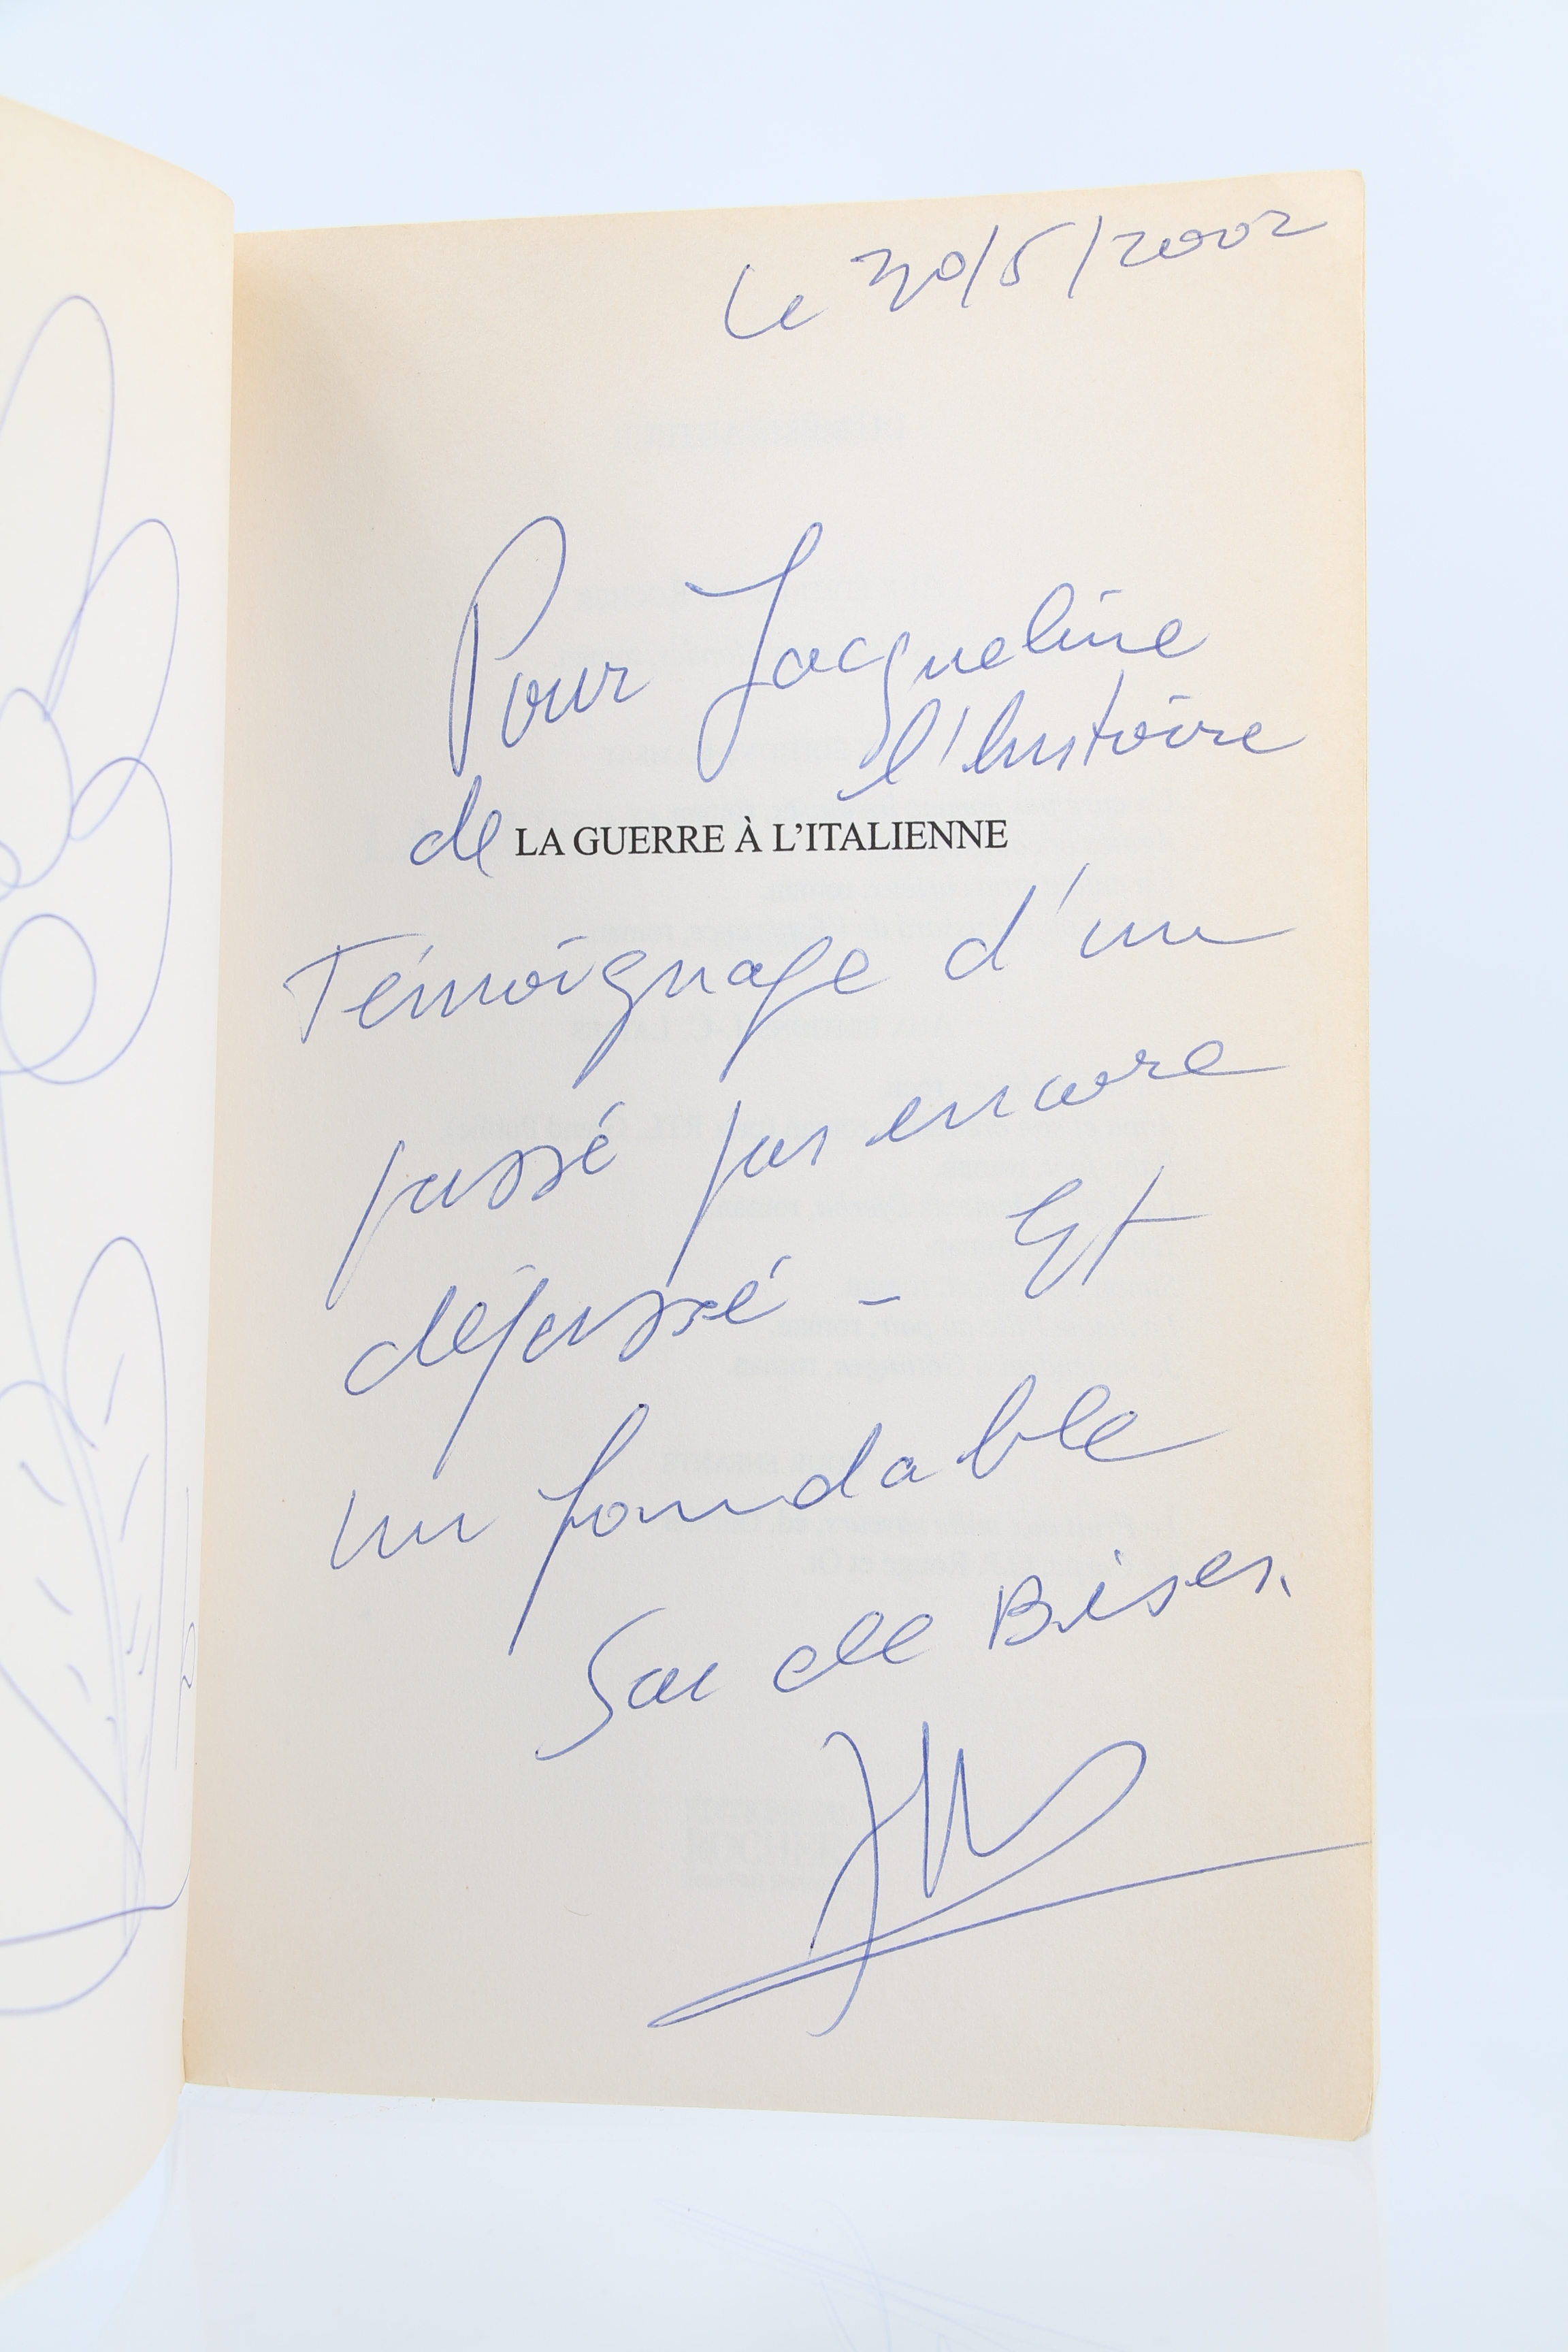 Le 30/5/2002
Pour Jacqueline
l'histoire
de LA GUERRE À L'ITALIENNE
Témoignage d'un
passé pas encore
dépassé - Et
un formidable
Sac de Bises.